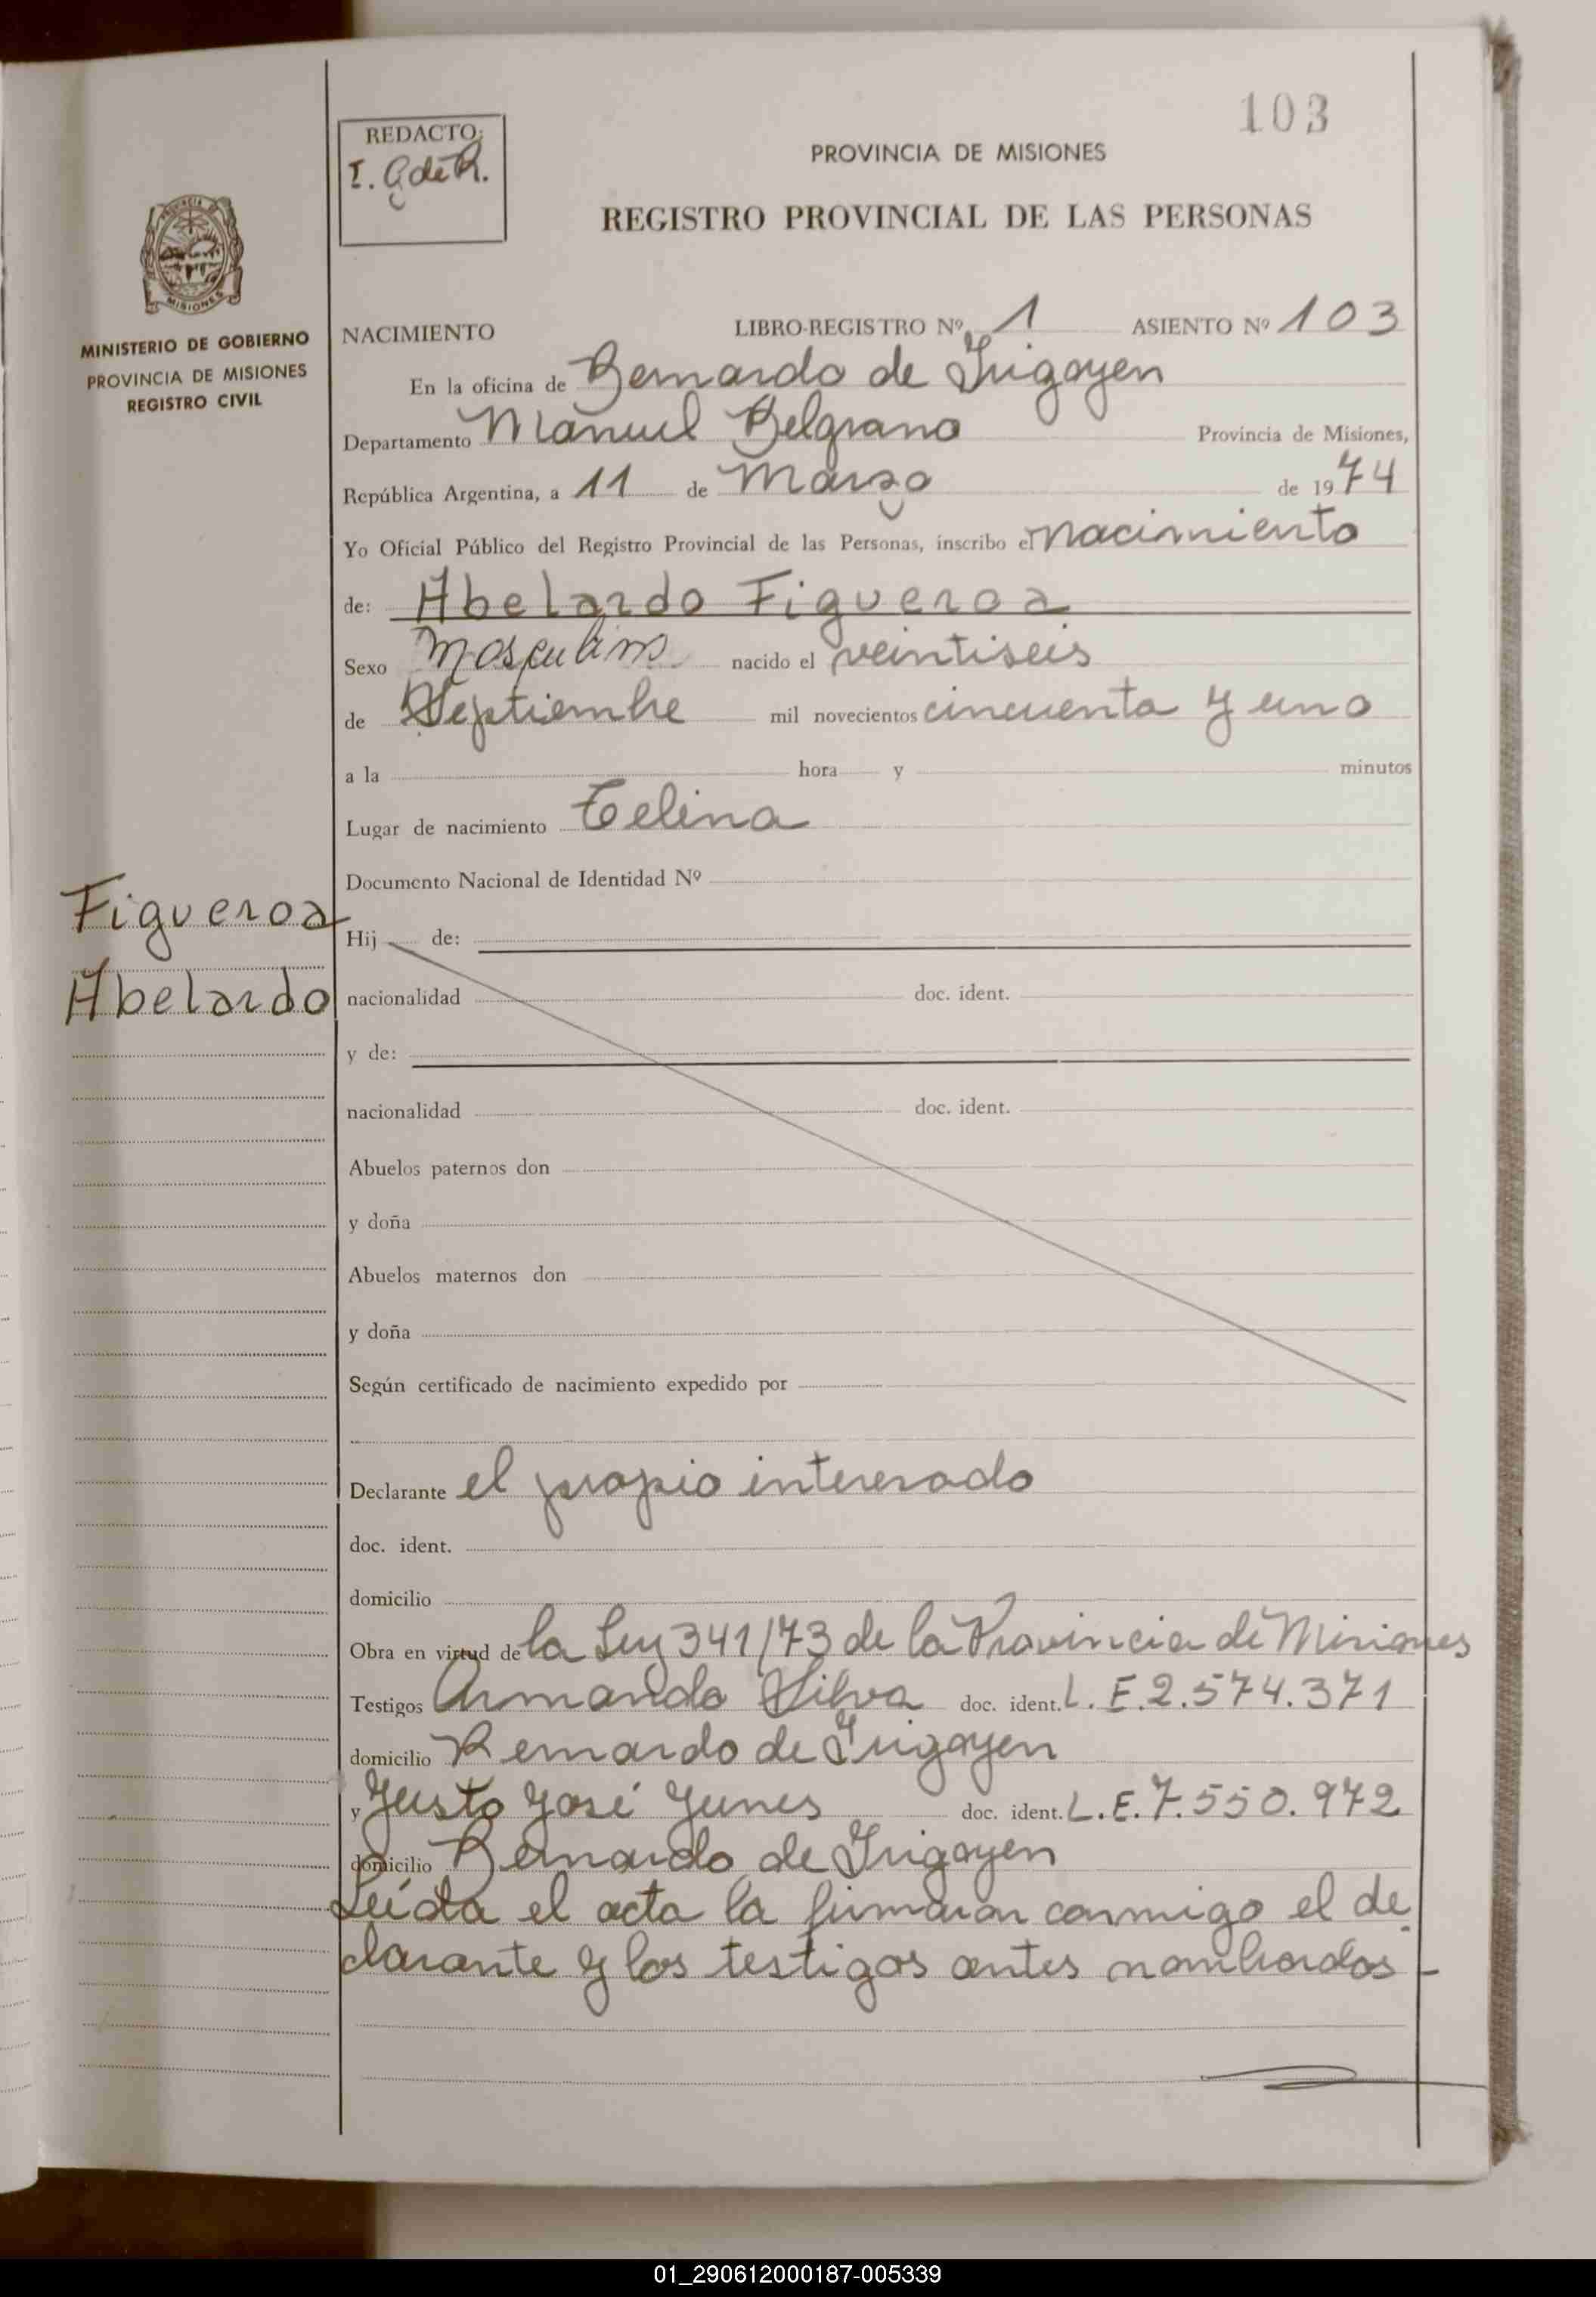 103
REDACTO:
I. G de R.
PROVINCIA DE MISIONES
REGISTRO PROVINCIAL DE LAS PERSONAS
PROVINCIA DE
MISIONES
MINISTERIO DE GOBIERNO
PROVINCIA DE MISIONES
REGISTRO CIVIL
NACIMIENTO LIBRO-REGISTRO Nº 1 ASIENTO Nº 103
En la oficina de Bernardo de Irigoyen
Departamento Manuel Belgrano Provincia de Misiones,
República Argentina, a 11 de Marzo de 1974
Yo Oficial Público del Registro Provincial de las Personas, inscribo el nacimiento
de: Abelardo Figueroa
Sexo Masculino nacido el veintiseis
de Septiembre mil novecientos cincuenta y uno
a la hora y minutos
Lugar de nacimiento Celina
Documento Nacional de Identidad Nº
Figueroa
Abelardo
Hij de:
nacionalidad doc. ident.
y de:
nacionalidad doc. ident.
Abuelos paternos don
y doña
Abuelos maternos don
y doña
Según certificado de nacimiento expedido por
Declarante el propio interesado
doc. ident.
domicilio
Obra en virtud de la Ley 341/73 de la Provincia de Misiones
Testigos Armando Silva doc. ident. L. E. 2.574.371
domicilio Bernardo de Irigoyen
y Justo José Yunes doc. ident. L. E. 7.550.972
domicilio Bernardo de Irigoyen
Leída el acta la firmaron conmigo el de
clarante y los testigos antes nombrados -
01_290612000187-005339